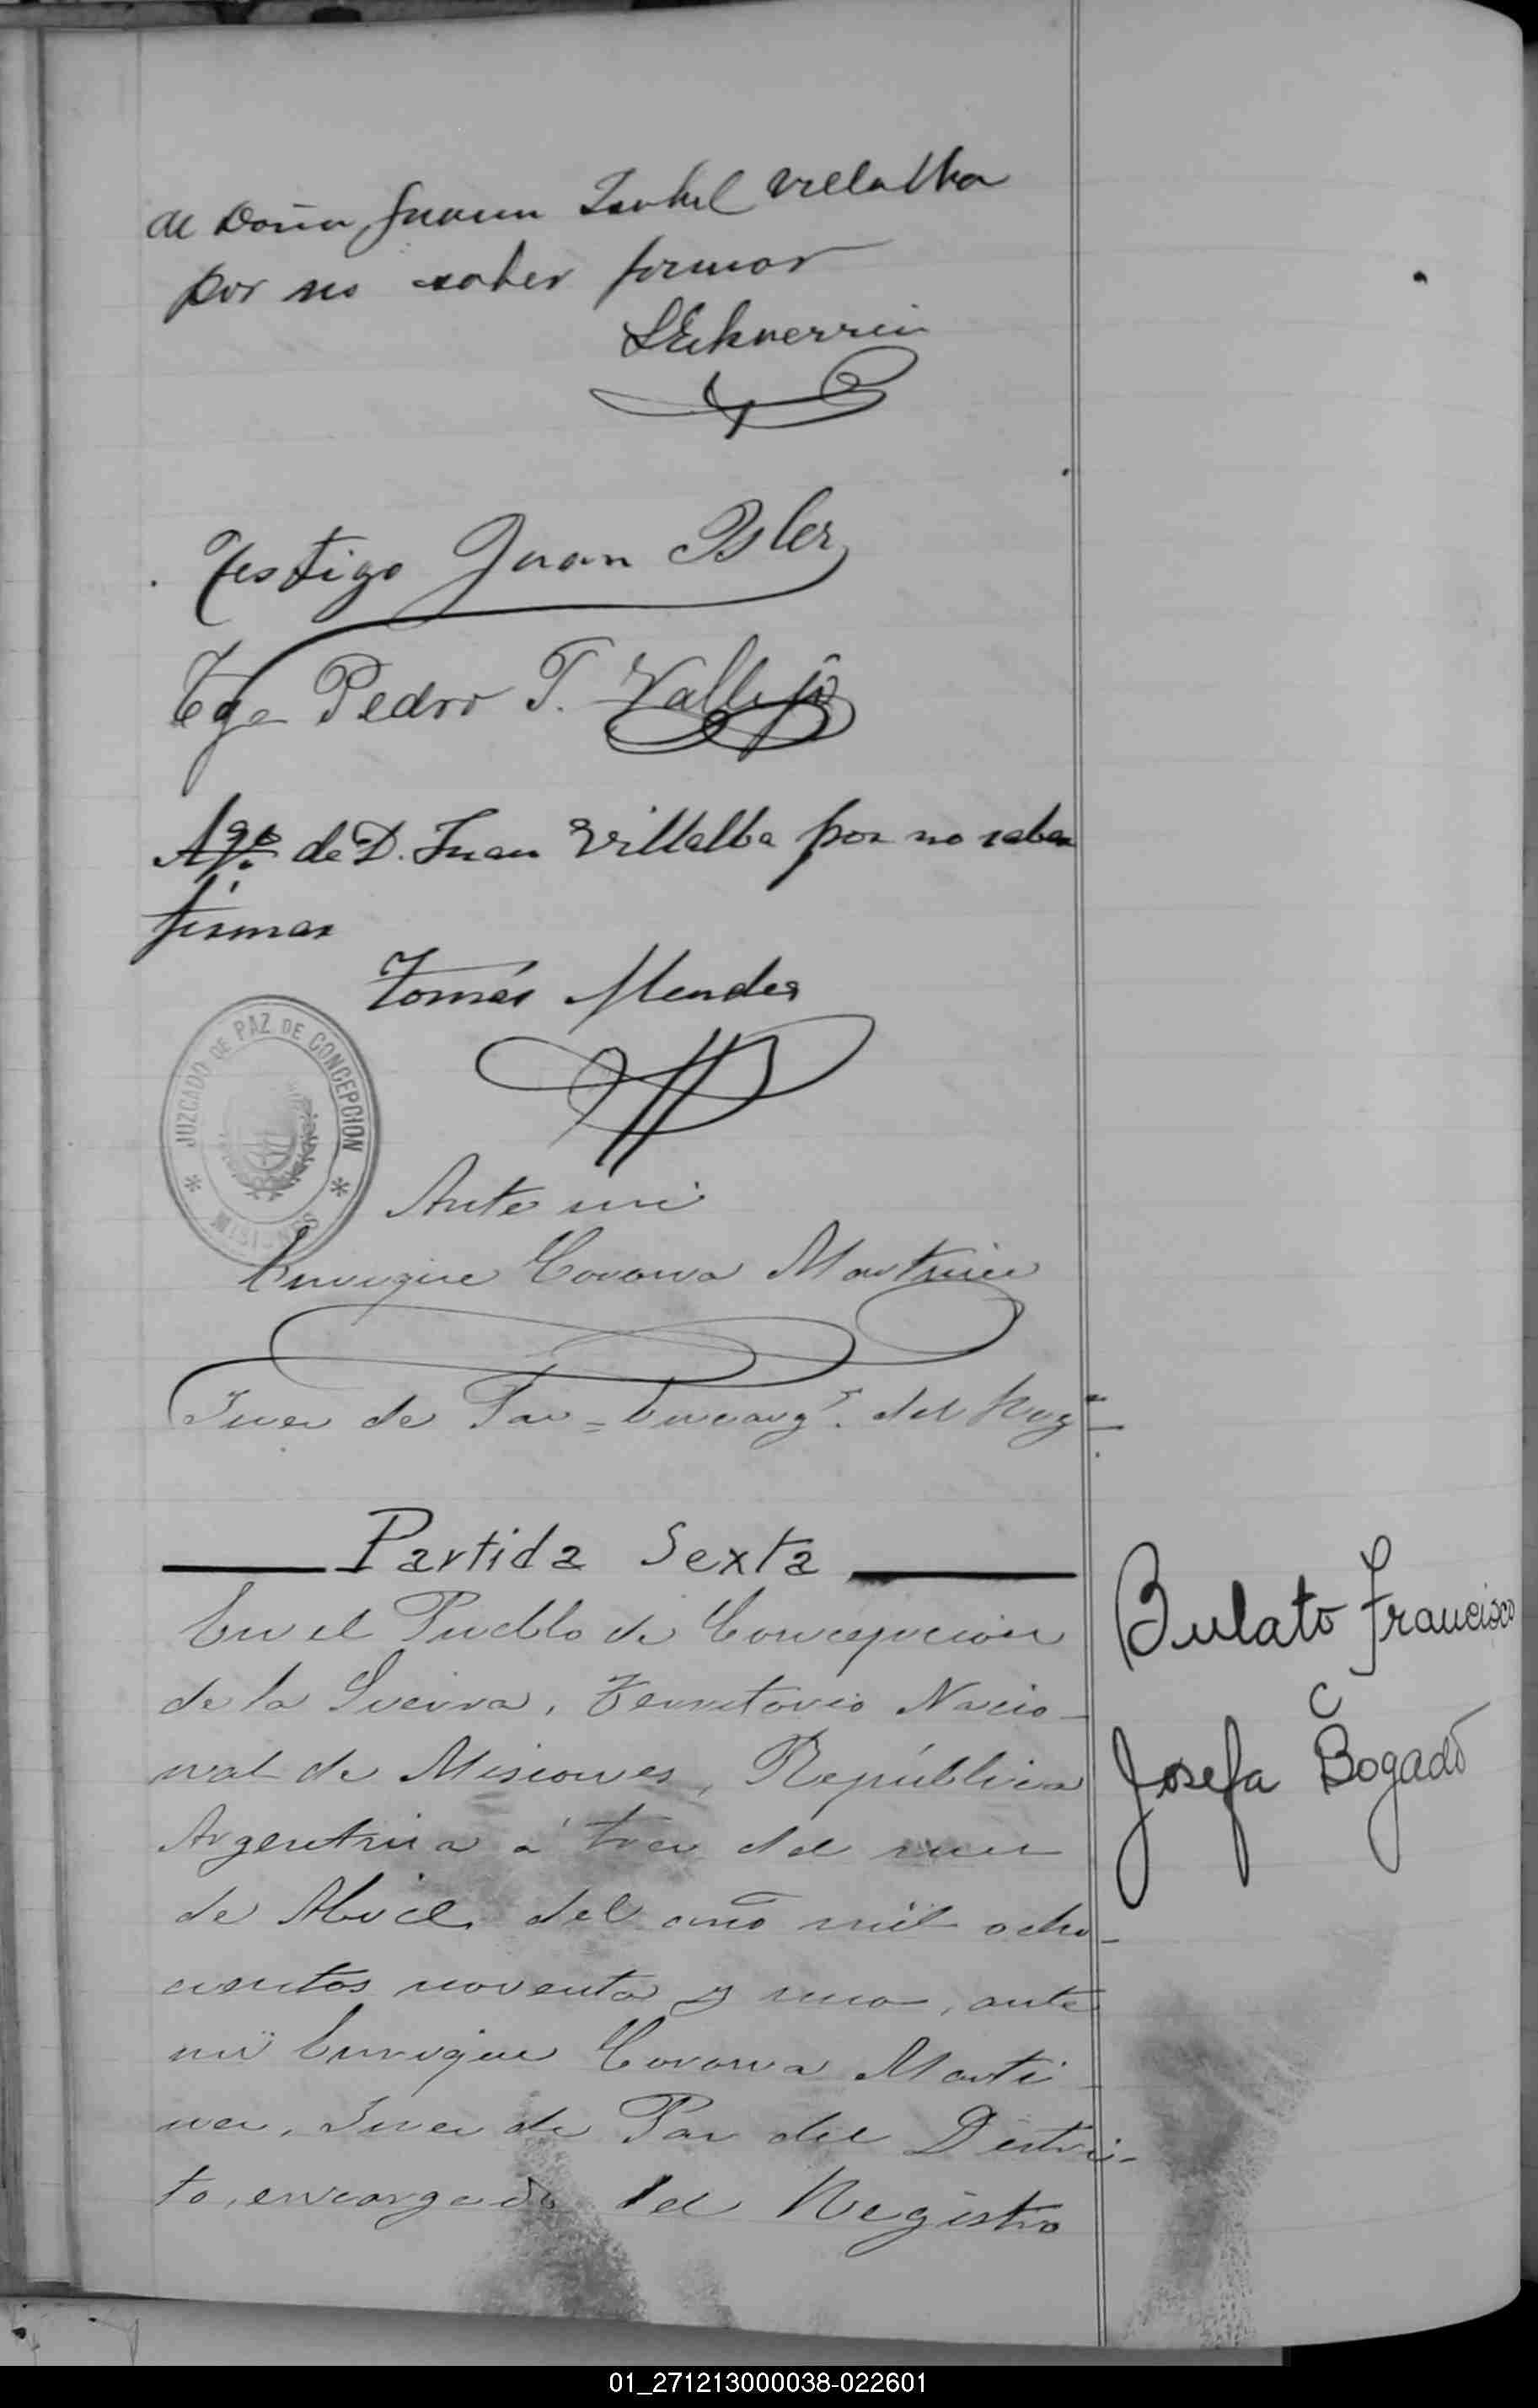 de Doña Juana Isabel Villalba
por no saber firmar
LEcheverria
Testigo Juan Isler
Tgo Pedro T. Vallejo
A rgo. de D. Juan Villalba por no saber
firmar
Tomás Mendes
JUZGADO DE PAZ DE CONCEPCION
MISIONES
Ante mi
Enrique Corona Martinez
Juez de Paz = Encarg°. del Reg
Partida Sexta
En el Pueblo de Concepcion
de la Sierra, Territorio Nacio-
nal de Misiones, República
Argentina á tres del mes
de Abril del año mil ocho-
cientos noventa y uno, ante
mi Enrique Corona Marti-
nez, Juez de Paz del Distri-
to, encargado del Registro
Bulato Francisco
C
Josefa Bogado
01_271213000038-022601